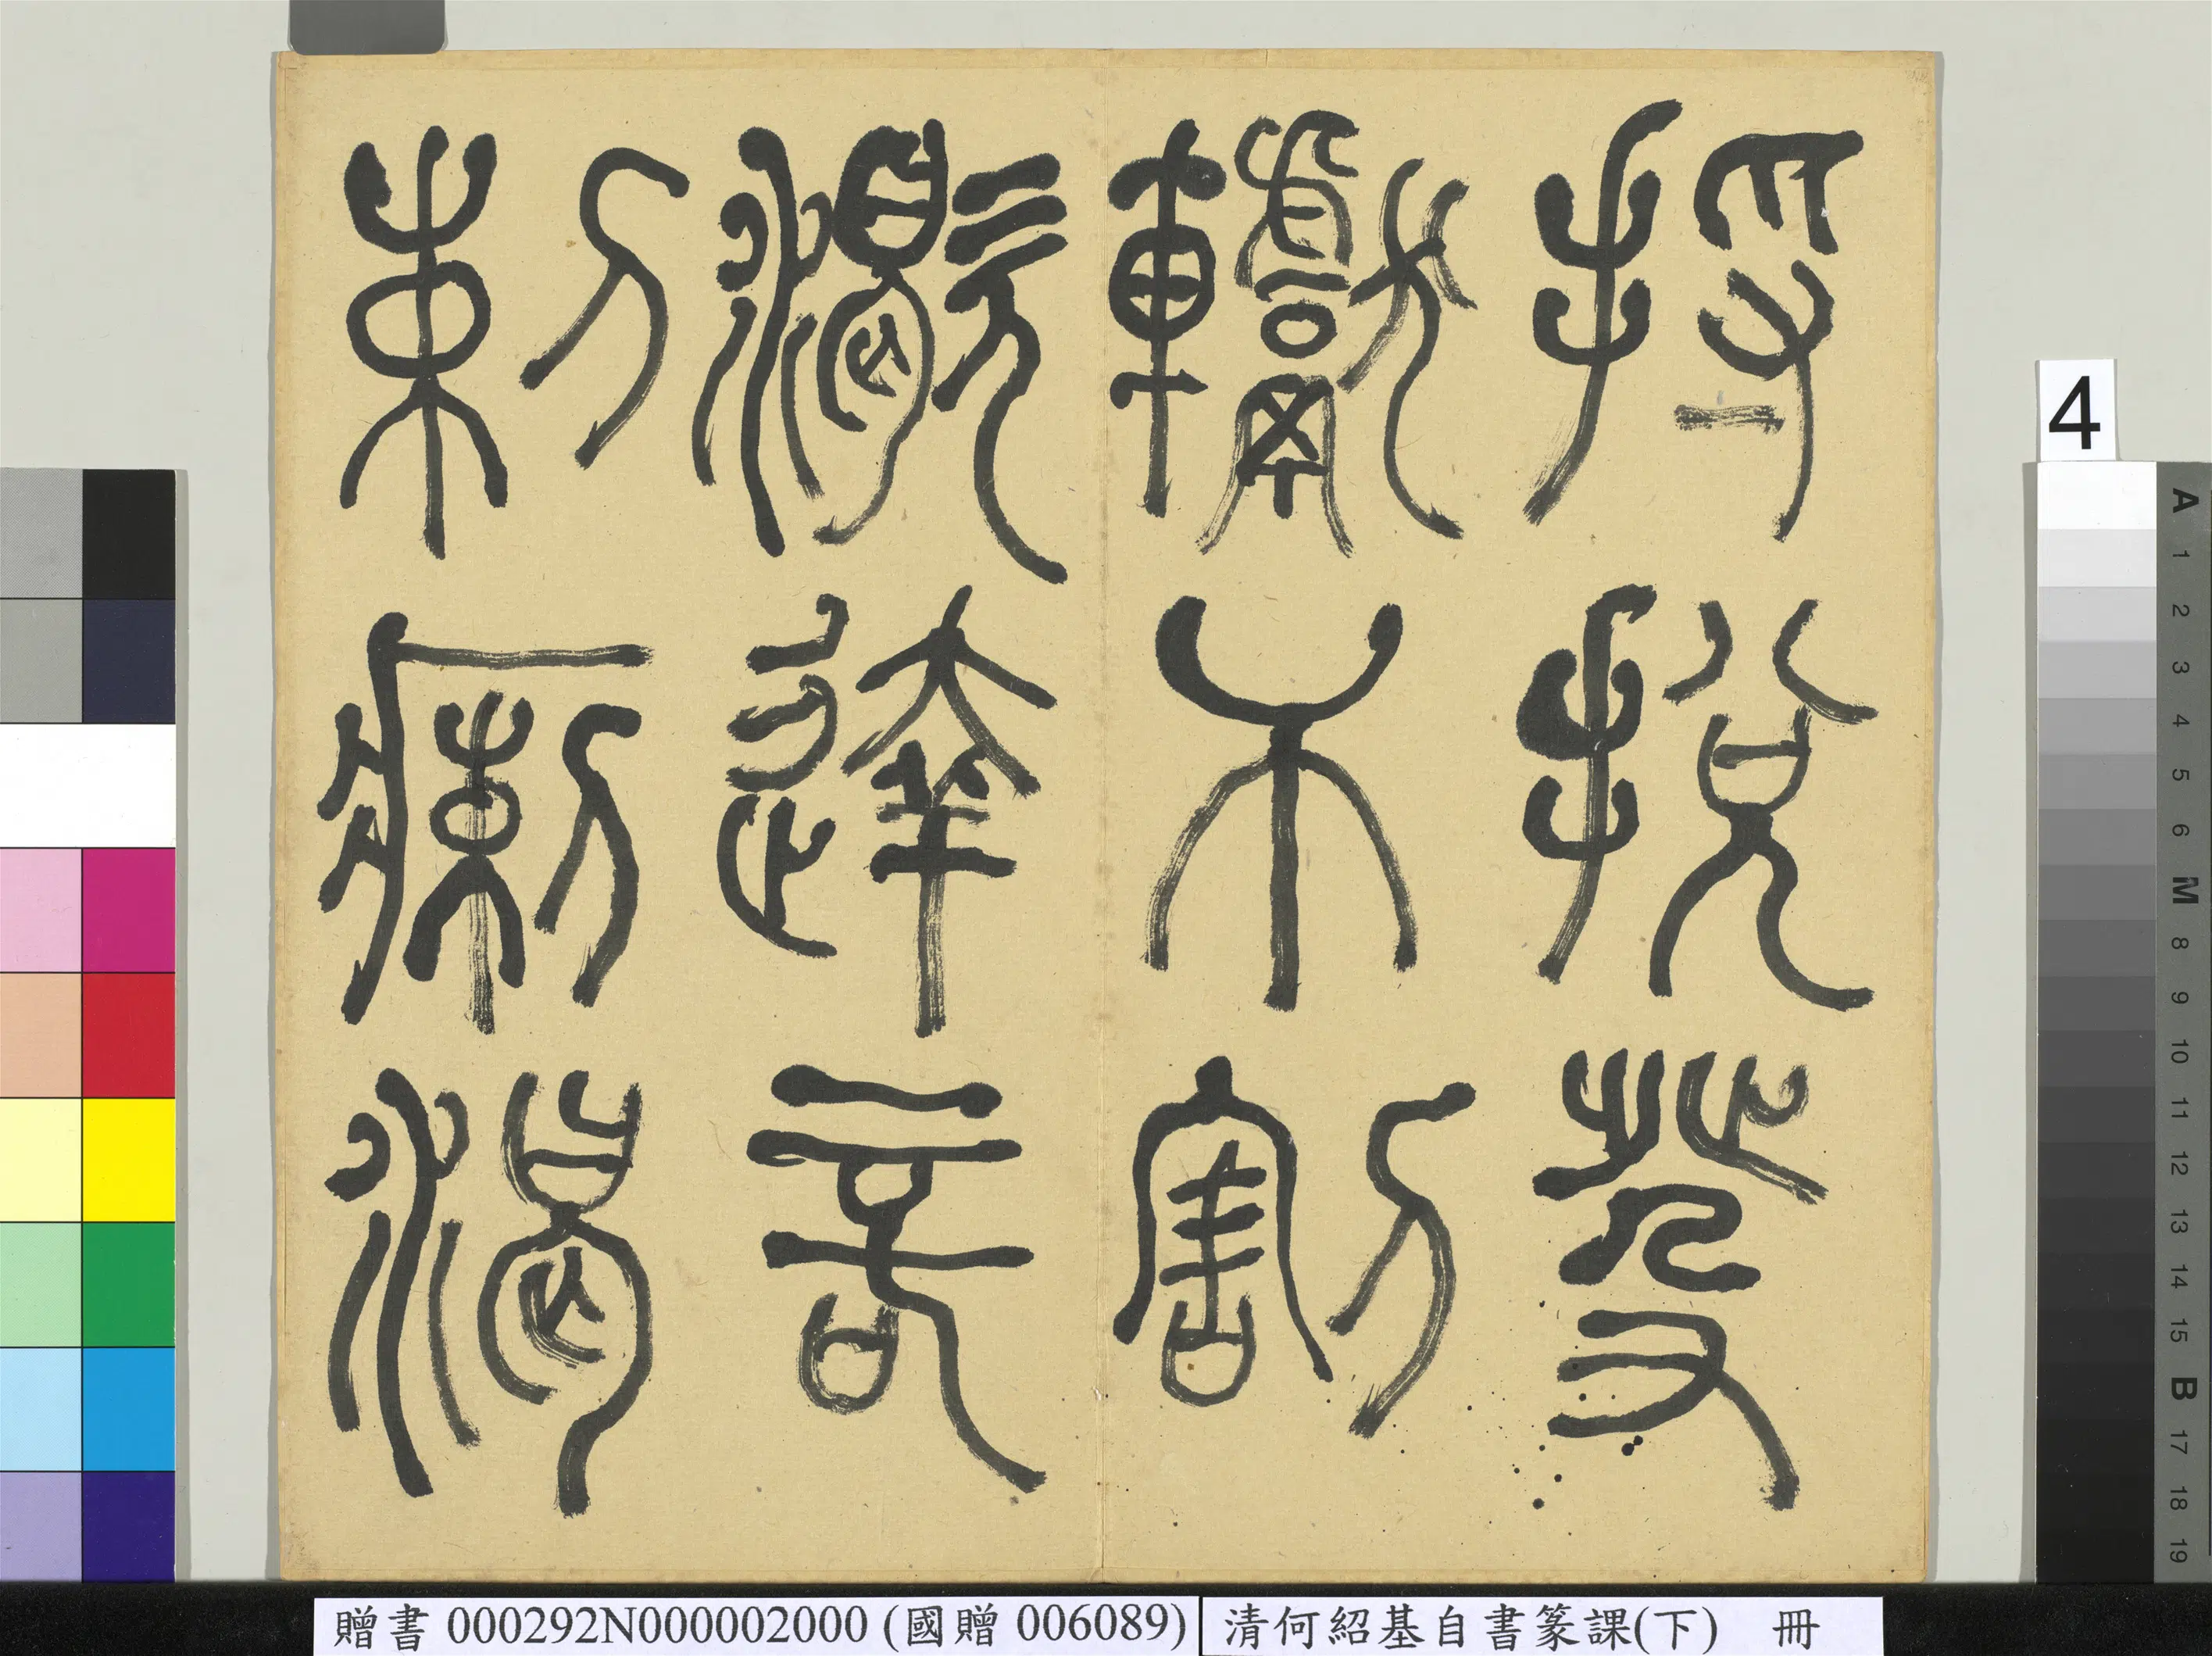 捋挩癹
𣎴割
㵣達
剌瘌渴
4
A 1 2 3 4 5 6 M 8 9 10 11 12 13 14 15 B 17 18 19
贈書 000292N000002000 (國贈 006089) 清何紹基自書篆課(下) 冊